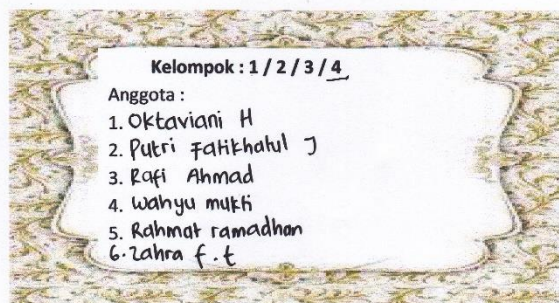 Kelompok : 1 / 2 / 3 / 4
Anggota :
1. Oktaviani H
2. Putri Fatikhatul J
3. Rafi Ahmad
4. Wahyu mukti
5. Rahmat ramadhan
6. Zahra f.t